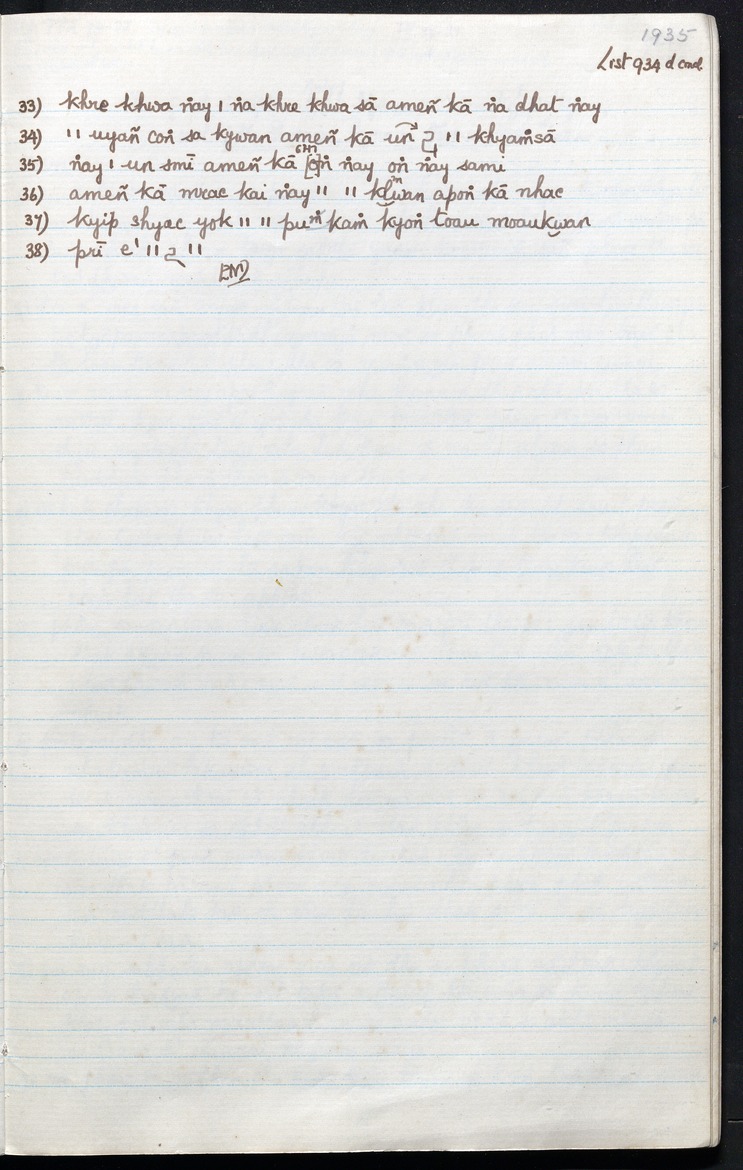 1935
List 934 d cond.
33) khre khwa ṅay ၊ ṅa khre khwa sā ameñ kā ṅa dhat ṅay
34) ။ uyañ coṅ sa kywan ameñ kā uṅ ၂ ။ khyaṁsā
35) ṅay ၊ un smī ameñ kā ṅay oṅ ṅay sami
36) ameñ kā mrac kai ṅay ။ ။ klwan apoṅ kā nhac
37) kyip shyac yok ။ ။ puṁ kaṁ kyoṅ toau moaukwan
38) prī e' ။ ၂ ။